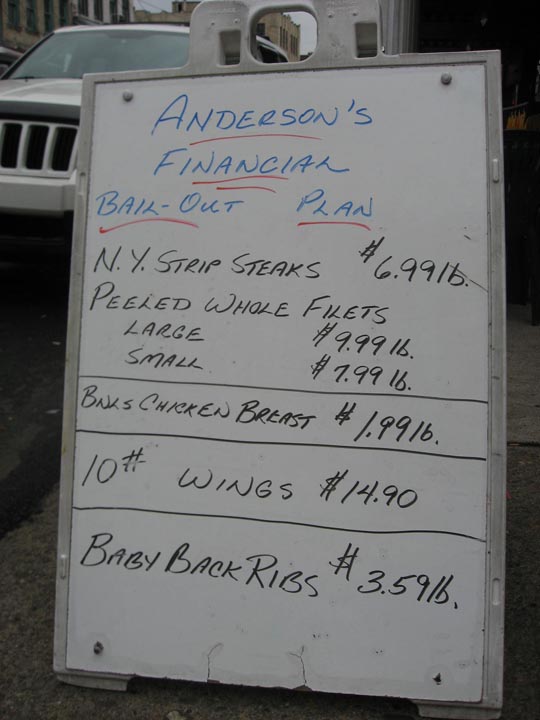 ANDERSON'S
FINANCIAL
BAIL-OUT PLAN
N.Y. STRIP STEAKS $6.99 lb.
PEELED WHOLE FILETS
LARGE $9.99 lb.
SMALL $7.99 lb.
BNLS CHICKEN BREAST $1.99 lb.
10# WINGS $14.90
BABY BACK RIBS $3.59 lb.